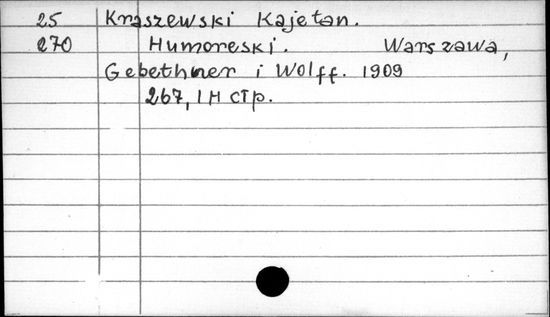 25 Kraszewski Kajetan.
270 Humoreski. Warszawa,
Gebethner i Wolff. 1909
267, 1 н стр.